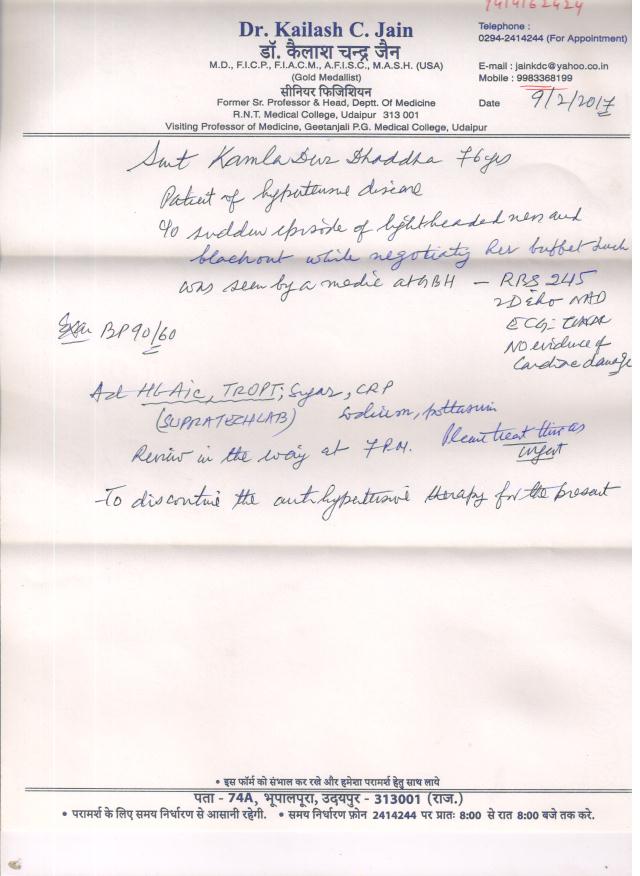 9414162424
Dr. Kailash C. Jain
डॉ. कैलाश चन्द्र जैन
M.D., F.I.C.P., F.I.A.C.M., A.F.I.S.C., M.A.S.H. (USA)
(Gold Medallist)
सीनियर फिजिशियन
Former Sr. Professor & Head, Deptt. Of Medicine
R.N.T. Medical College, Udaipur 313 001
Visiting Professor of Medicine, Geetanjali P.G. Medical College, Udaipur
Telephone :
0294-2414244 (For Appointment)
E-mail : jainkdc@yahoo.co.in
Mobile : 9983368199
Date 9/2/2017
Smt Kamla Dhaddha 76 yrs
Patient of hypertensive disease
sudden episode of lightheadedness and
blackout while negotiating her buffet lunch
was seen by a medic at GBH – RBS 245
2D Echo NAD
ECG:
NO evidence of
Cardiac damage
BP 90/60
Ad Hb A1c, TROPT; Sugar, CRP
(SUPRATECH LAB) Sodium, pottasium
Review in the way at 7 P.M. Please treat this as
urgent
-To discontinue the antihypertensive therapy for the present
• इस फॉर्म को संभाल कर रखे और हमेशा परामर्श हेतु साथ लाये
पता - 74A, भूपालपूरा, उदयपुर - 313001 (राज.)
• परामर्श के लिए समय निर्धारण से आसानी रहेगी. • समय निर्धारण फ़ोन 2414244 पर प्रातः 8:00 से रात 8:00 बजे तक करे.